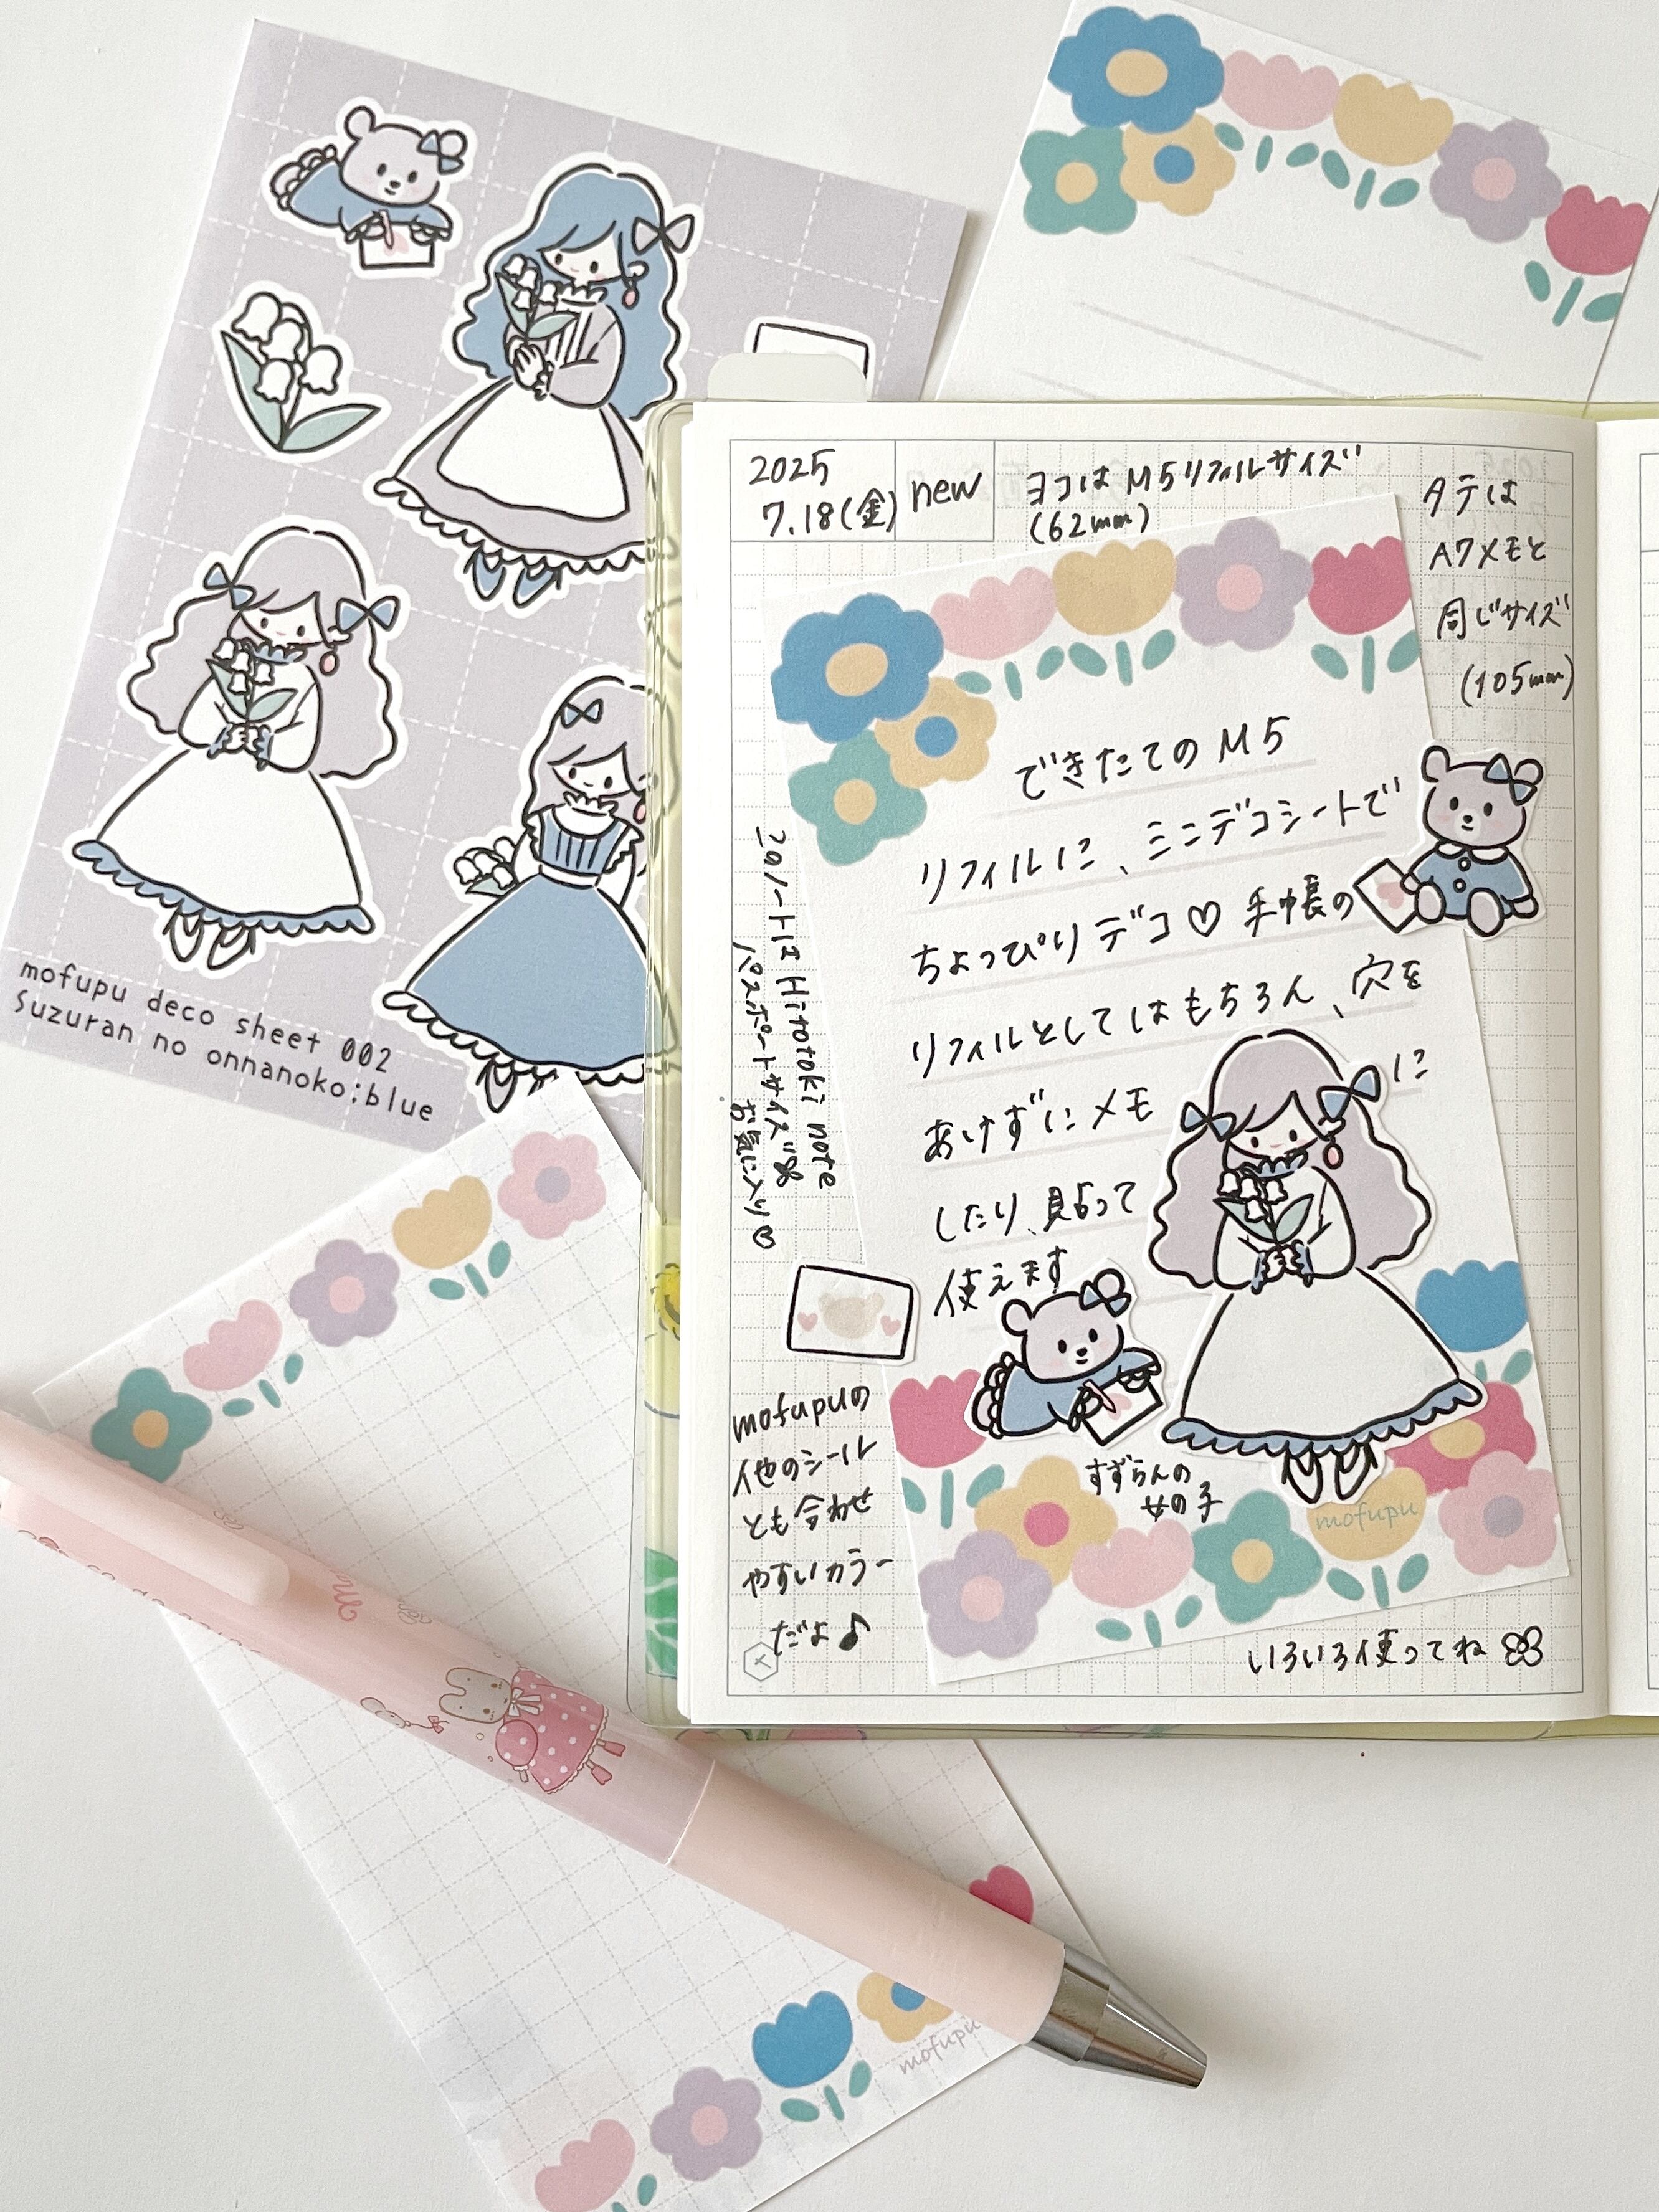 mofupu deco sheet 002
Suzuran no onnanoko:blue
2025
7.18(金)
new
ヨコはM5リフィルサイズ
(62mm)
タテは
A7メモと
同じサイズ
(105mm)
できたてのM5
リフィルに、ミニデコシートで
ちょっぴりデコ♡手帳の
リフィルとしてはもちろん、穴を
あけずにメモに
したり、貼って
使えます
このノートは Hitotoki note
パスポートサイズ
お気に入り♡
mofupuの
他のシール
とも合わせ
やすいカラー
だよ♪
すずらんの
女の子
mofupu
いろいろ使ってね
mofupu